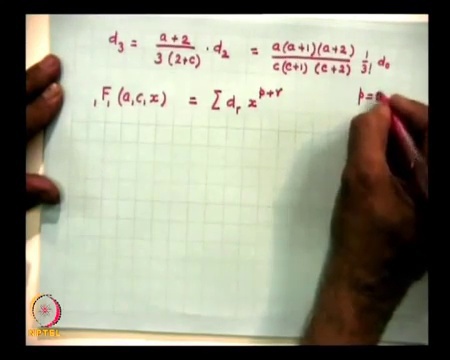 d₃ = (a+2)/(3(2+c)) · d₂ = (a(a+1)(a+2))/(c(c+1)(c+2)) 1/3! d₀
₁F₁(a,c,x) = Σ dᵣ x^(p+r) p=
NPTEL